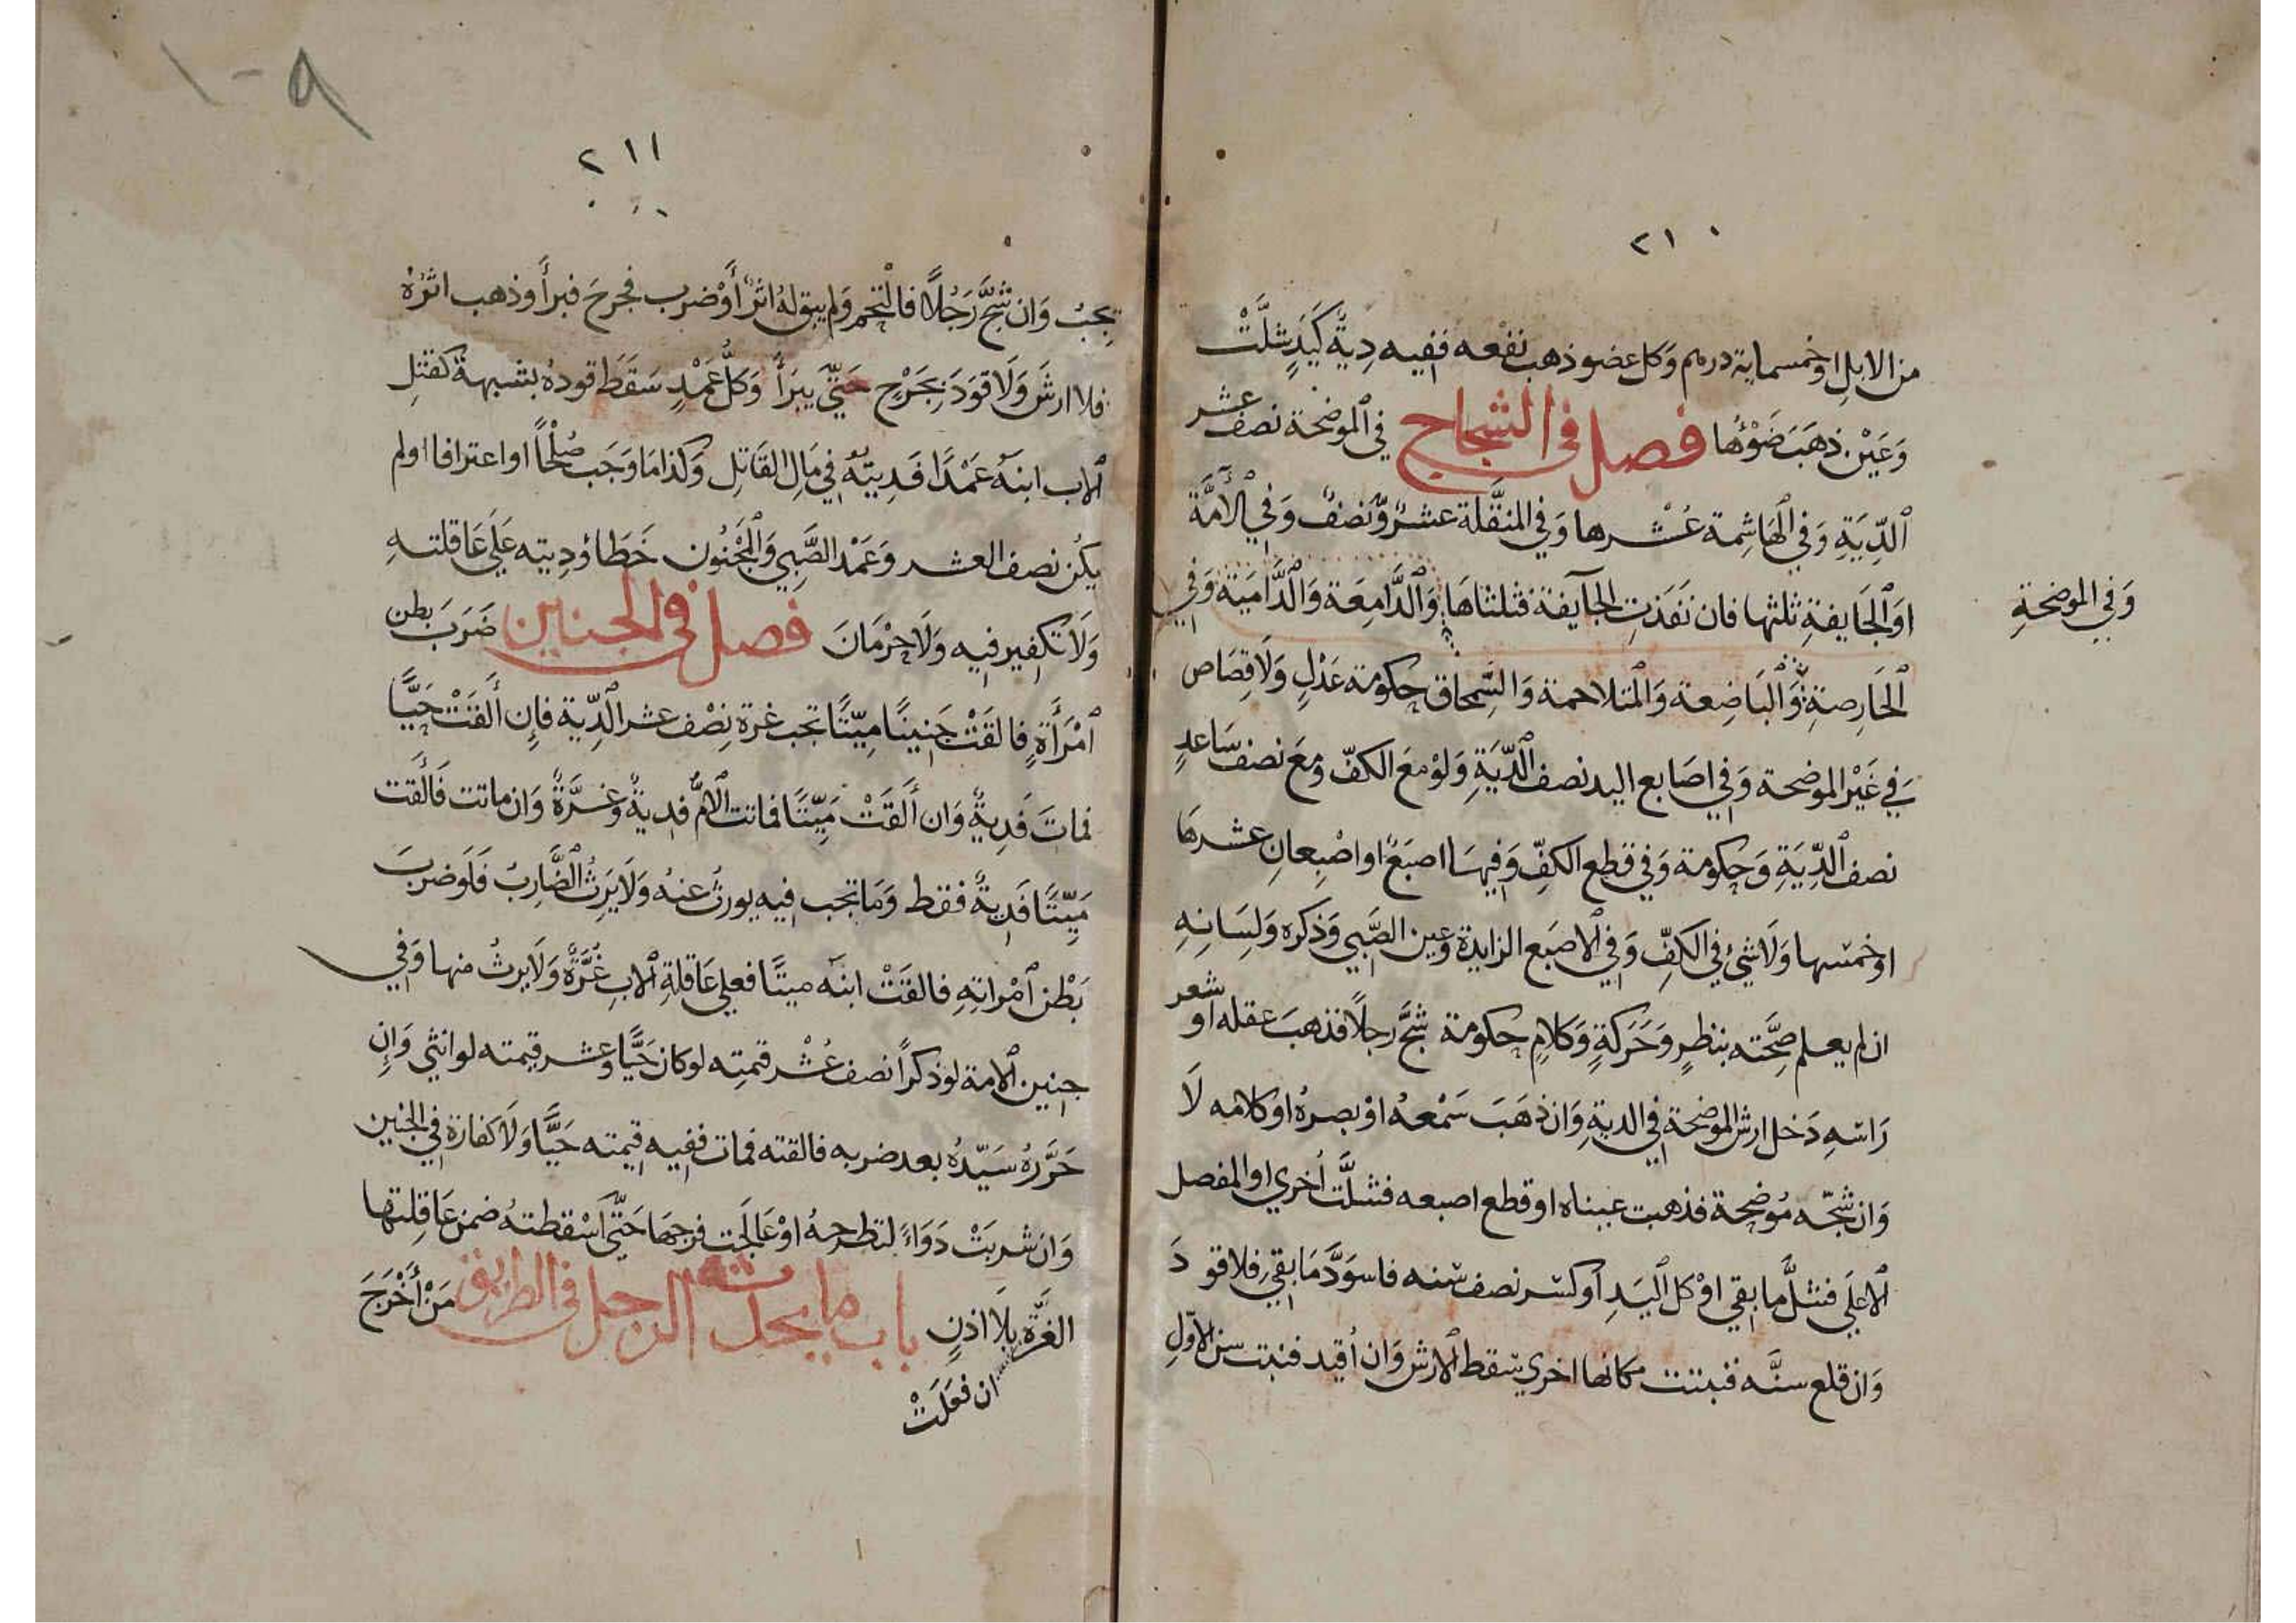 ٢١٠
من الابلِ اوْخمسماية درهم وَكل عضو ذهب نفعه ففيه دِيةٌ كَيَدٍ شلَّتْ
وَعَيْنٍ ذهَبَ ضَوْؤُها فصل في الشجاج في الموضحة نصف عشر
ٱلدِّيَةِ وَفي ٱلهَاشِمة عُشْرها وَفي المنقَّلة عشرٌ وَّنصفٌ وَفي ٱلآمَّة
اوِ ٱلجَايفةِ ثلثها فان نفَذتِ الجآيفة فثلثاهَا وَٱلدَّامِعَة وَٱلدَّامِيَة وَفي
وَفي الموضحةِ
ٱلحَارِصةِ وَٱلبَاضِعة وَٱلمتلاحمة وَالسِّمحاق حكومة عَدْلٍ وَلَا قِصَاص
في غَيْر الموضحة وَفي اصَابع اليد نصف ٱلدِّيَةِ وَلوْ معَ الكفّ وَمعَ نصف سَاعدٍ
نصف ٱلدِّيَةِ وَحكومة وَفي قطع الكفِّ وَفيهَا اصبَعٌ او اصْبِعانِ عشرهَا
اوخمسها وَلَا شيْءَ في الكفِّ وَفي ٱلاصبَع الزايدة وَعين الصَّبي وَذكره وَلسَانهِ
ان لم يعلم صِحَّته بنظرٍ وَحَرَكةٍ وَكلامٍ حكومة شجَّ رجلًا فذهبَ عقله او شعر
رَاسهِ دَخل ارش الموضحة في الديةِ وَان ذهَبَ سَمْعهُ اوْ بصرهُ اوْ كلامه لَا
وَان شجّه مُوضحة فذهبت عيناه او قطع اصبعه فشلَّت اُخري او المفصل
ٱلاعلَي فشلَّ ما بقي اوْ كل ٱليَدِ اَو كسر نصف سنه فاسوَدَّ مَا بقي فلا قود
وَان قلع سنَّه فنبتت مكانها اخري سقط ٱلارش وَان اُقيد فنبت سن ٱلاوّلِ
٢١١
١٠٩
تجبُ وَان شجَّ رَجُلًا فالتْحم وَلم يبق لهُ اثرٌ أَوْ ضرب فجرحَ فبرأَ وذهب اثرُهْ
فلا ارشَ وَلَا قوَدَ بجَرْحٍ حَتّي يبَرأَ وَكلُّ عَمْدٍ سَقَطَ قودهُ بشبهة كقتل
ٱلاب ابنهُ عَمْدًا فَديتهُ في مَال القَاتِل وَكذا مَا وَجَب صُلْحًا او اعترافا اولم
يكُن نصف العشر وَعَمْد الصَّبِي وَٱلمجْنُون خَطَأٌ وَدِيته عَلي عَاقلتهِ
وَلَا تكفير فيه وَلَا حِرْمَانَ فصل في الجنين ضَرَبَ بطن
ٱمْرَأَةٍ فالقَتْ جَنينًا ميّتًا تجب غرة نِصْف عشر ٱلدِّية فإِن أَلقَتْ حَيًّا
فمَاتَ فَديةٌ وَان أَلقَتْ مَيّتًا فماتت ٱلامُّ فديةٌ وغرَّةٌ وَان ماتت فَأَلقت
مَيّتًا فَديةٌ فقط وَمَا تجب فيه يورثُ عنهُ وَلَا يَرِثُ ٱلضَّارِبُ فلَو ضربَ
بَطْن ٱمْراتهِ فالقَتْ ابنه ميتًا فعلي عَاقلةِ ٱلابِ غُرَّةٌ وَلَا يرثُ منها وَفي
جنين ٱلامة لو ذكرًا نصف عُشْر قيمتِه لو كان حَيًّا وَعشر قيمته لو انثي وَإِن
حَرَّرهُ سَيّدُهُ بعد ضربه فالقته فمات ففيه قيمته حَيًّا وَلَا كفارة في الجنين
وَان شربَتْ دَوَاءً لتطرحهُ اوْ عَالجَت فرجهَا حَتّي اَسْقطتهُ ضمن عَاقِلتها
الغرَّة بلَا اذنٍ باب ما يحدثه الرجل في الطريق مَنْ أَخْرَجَ
ان فعَلَتْ